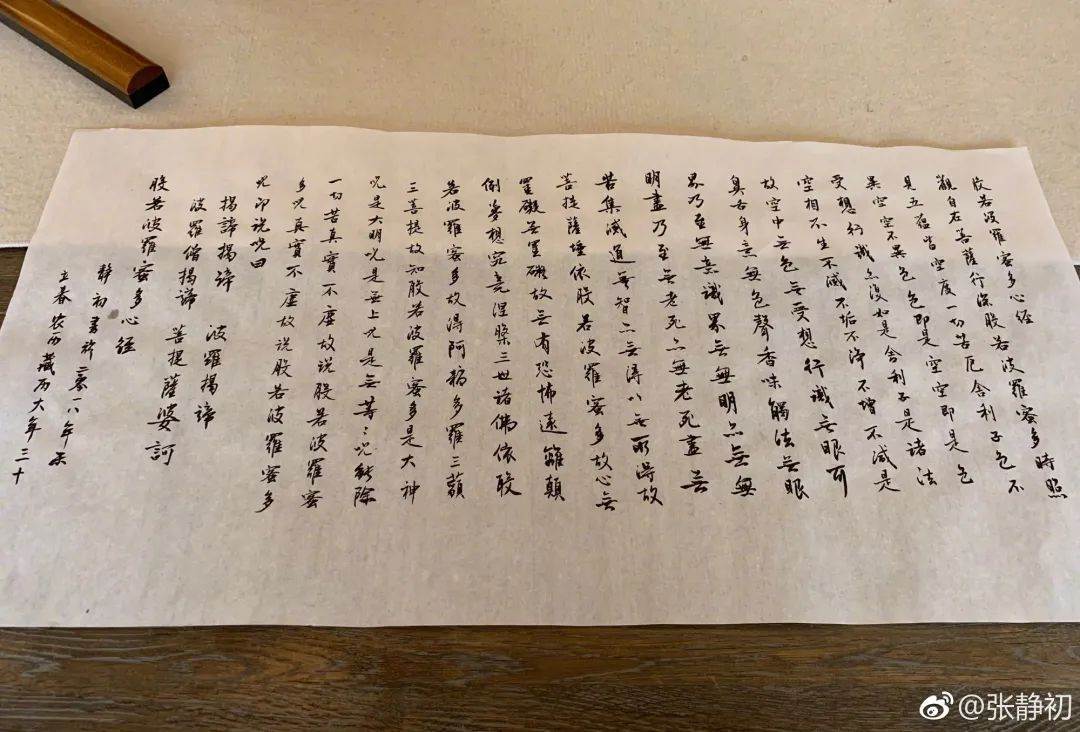 般若波羅蜜多心经
觀自在菩薩行深般若波羅蜜多時照
見五蕴皆空度一切苦厄舍利子色不
異空空不異色色即是空空即是色
受想行識亦復如是舍利子是諸法
空相不生不滅不垢不淨不增不減是
故空中無色無受想行識無眼耳
鼻舌身意無色聲香味觸法無眼
界乃至無意識界無無明亦無無
明盡乃至無老死亦無老死盡無
苦集滅道無智亦無得以無所得故
菩提薩埵依般若波羅蜜多故心無
罣礙無罣礙故無有恐怖遠離顛
倒夢想究竟涅槃三世諸佛依般
若波羅蜜多故得阿耨多羅三藐
三菩提故知般若波羅蜜多是大神
咒是大明咒是無上咒是無等〻咒能除
一切苦真實不虛故说般若波羅蜜
多咒真實不虛故说般若波羅蜜多
咒即说咒曰
揭諦揭諦 波羅揭諦
波羅僧揭諦 菩提薩婆訶
般若波羅蜜多心经
静初書於一八年末
立春 农历藏历大年三十
@张静初